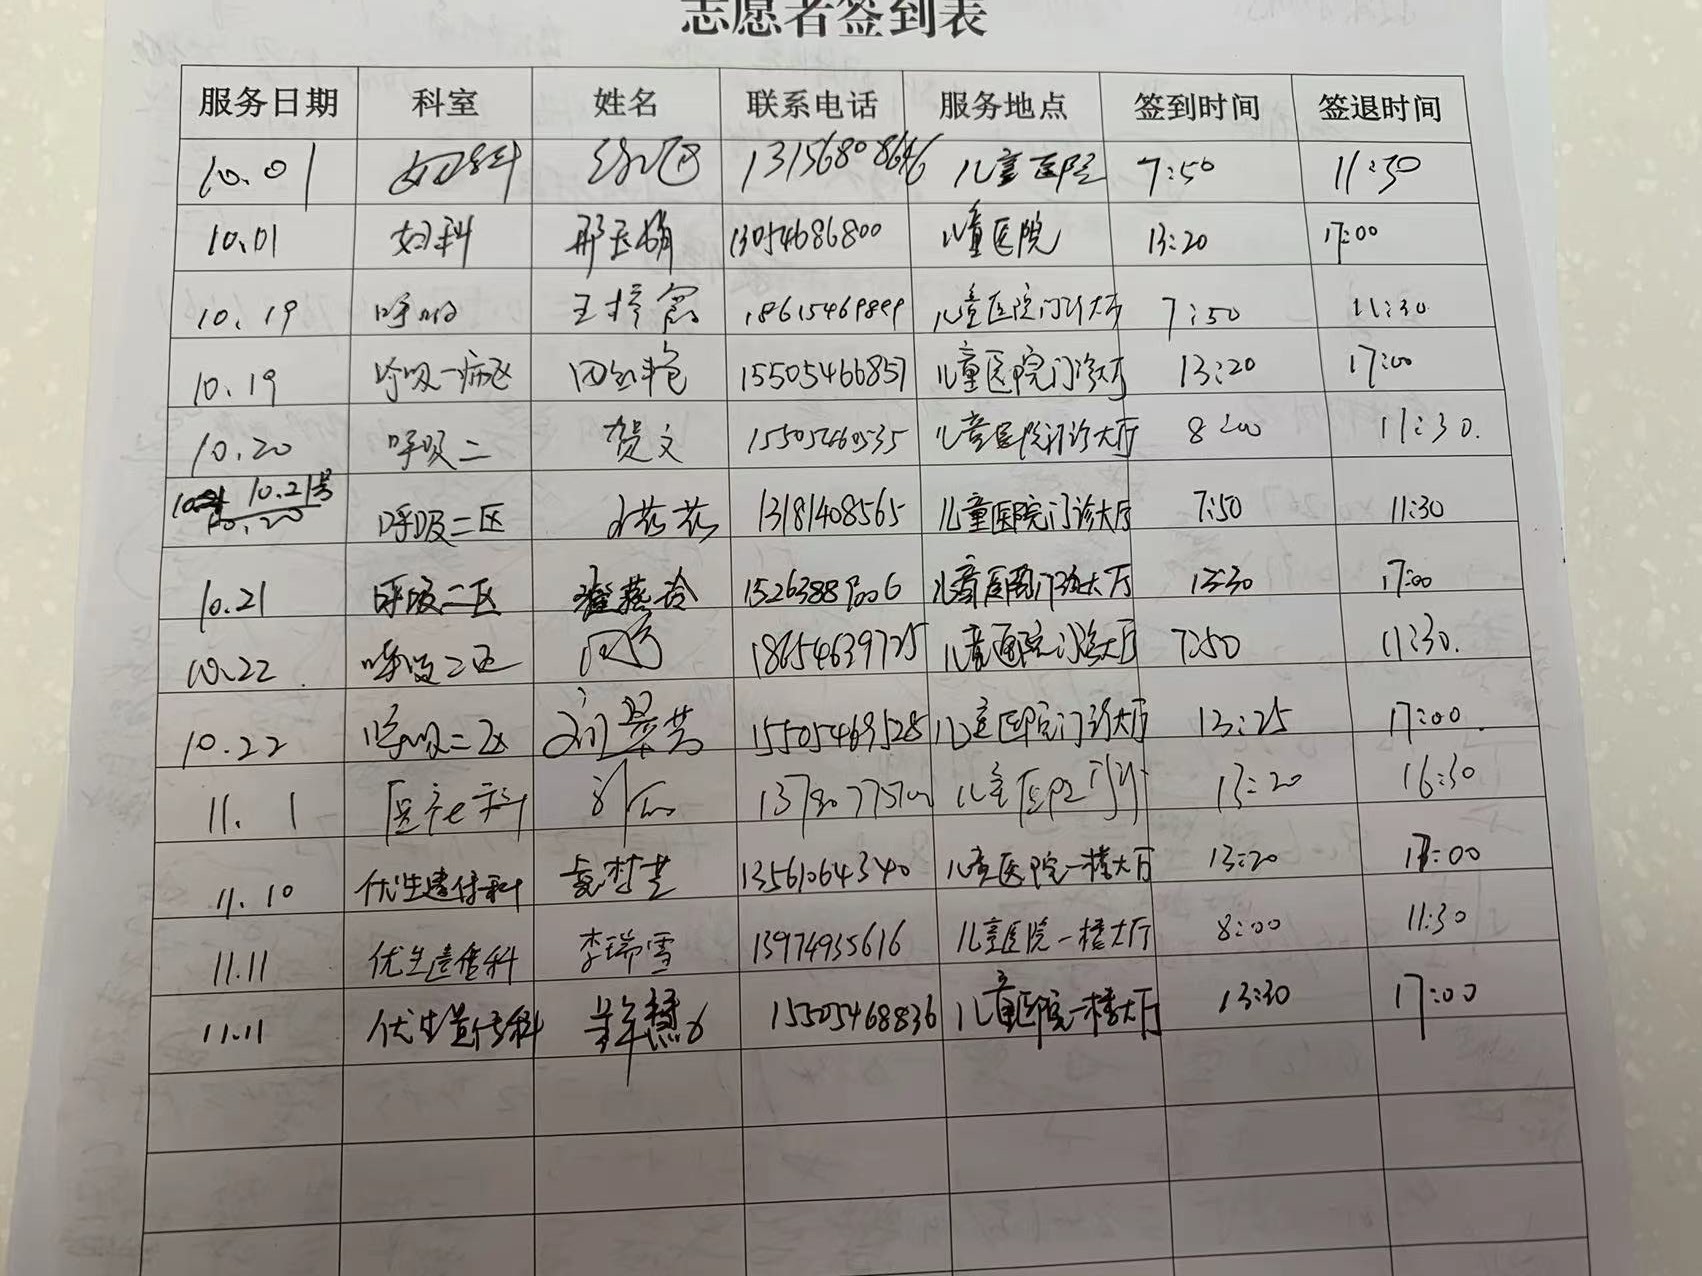 志愿者签到表
服务日期 科室 姓名 联系电话 服务地点 签到时间 签退时间
10.01 妇科 13156808646 儿童医院 7:50 11:30
10.01 妇科 13054686800 儿童医院 13:20 17:00
10.19 呼吸 王 18615469899 儿童医院门诊大厅 7:50 11:30
10.19 呼吸一病区 田红艳 15505466857 儿童医院门诊大厅 13:20 17:00
10.20 呼吸二 贺文 15505460535 儿童医院门诊大厅 8:00 11:30.
10.21号
10.20 呼吸二区 13181408565 儿童医院门诊大厅 7:50 11:30
10.21 呼吸二区 儿童医院门诊大厅 13:30 17:00
10.22 呼吸二区 18654639725 儿童医院门诊大厅 7:50 11:30.
10.22 呼吸二区 15505469528 儿童医院门诊大厅 13:25 17:00
11.1 儿童医院门诊 13:20 16:30
11.10 优生遗传科 13561064340 儿童医院一楼大厅 13:20 17:00
11.11 优生遗传科 李瑞雪 13974935616 儿童医院一楼大厅 8:00 11:30
11.11 优生遗传科 15505468836 儿童医院一楼大厅 13:30 17:00